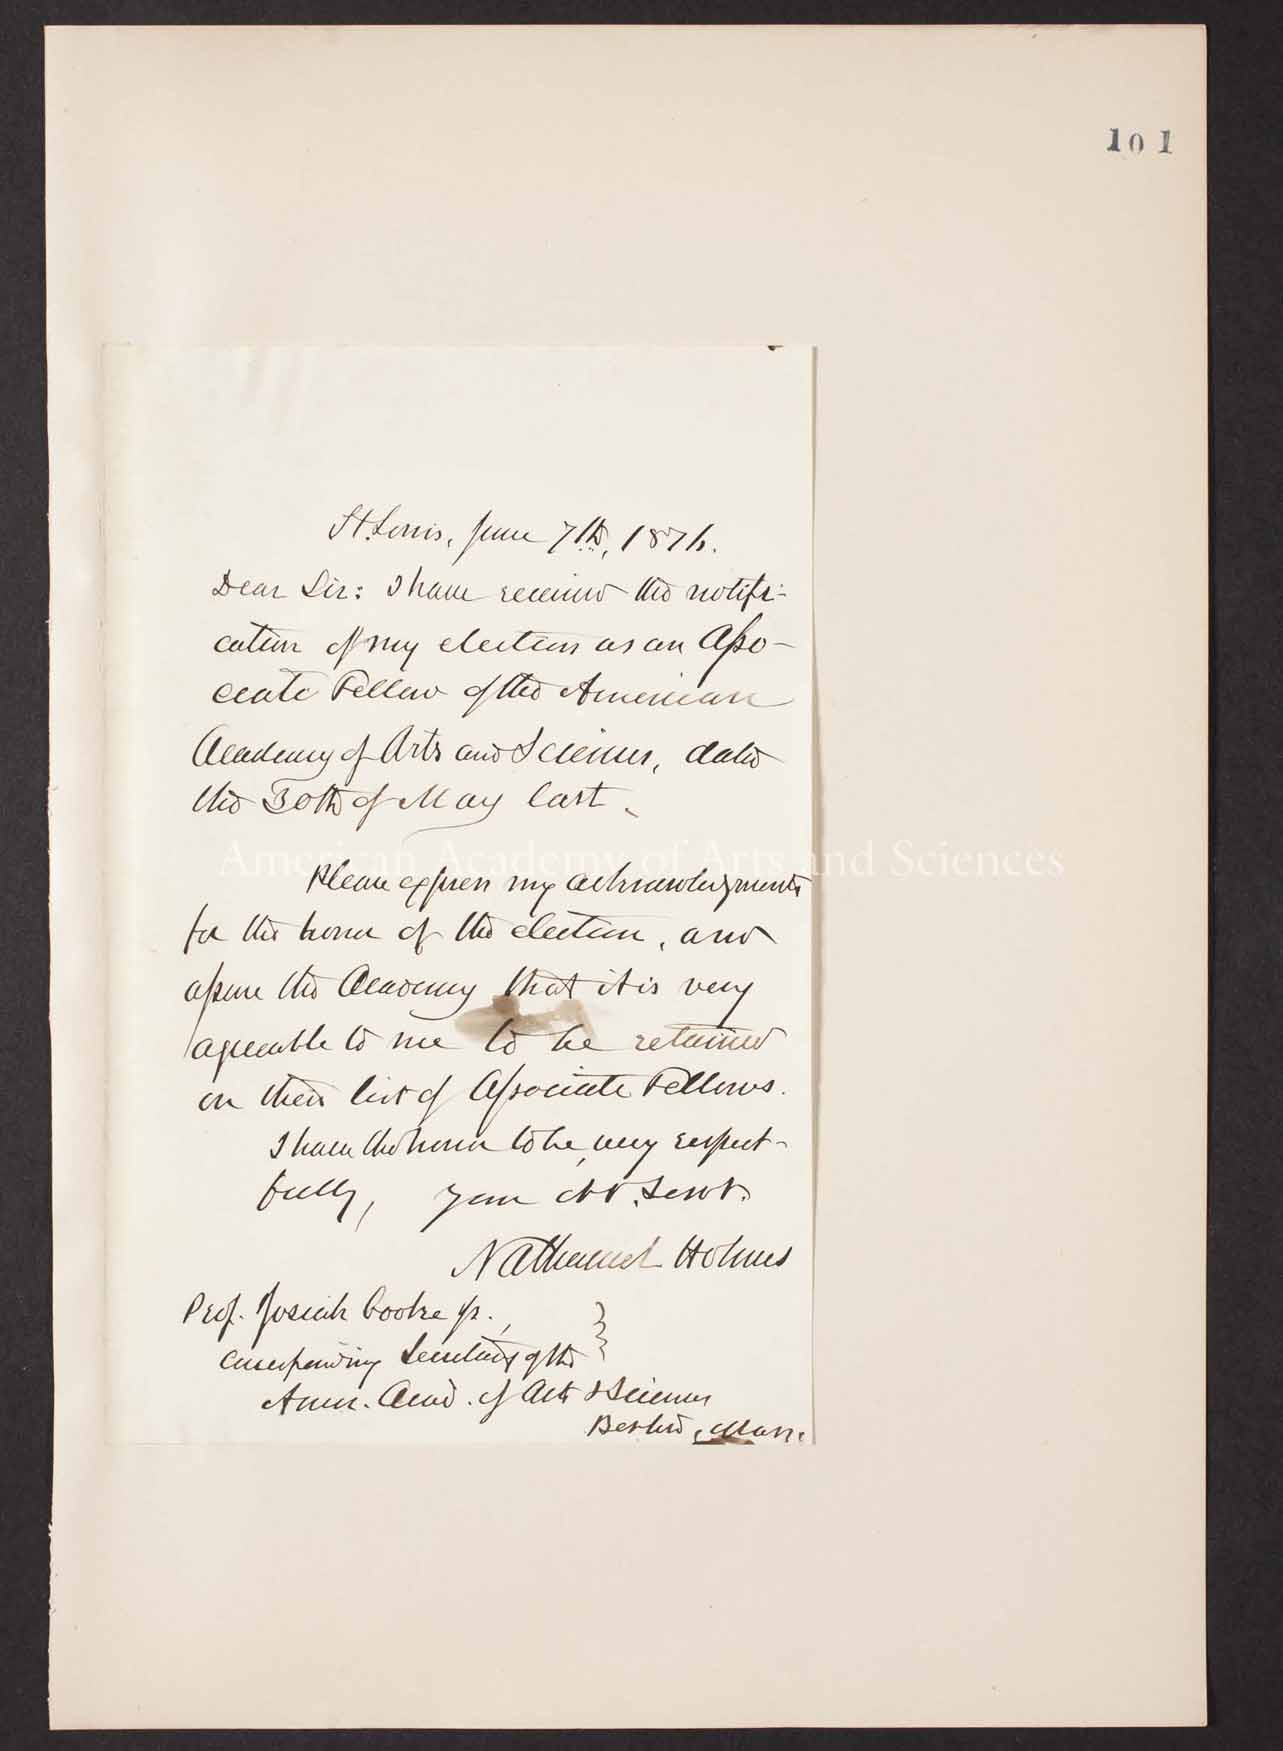 101
St. Louis, June 7th, 1876.
Dear Sir: I have received the notifi-
cation of my election as an Asso-
ciate Fellow of the American
Academy of Arts and Sciences, dated
the 30th of May last.
American Academy of Arts and Sciences
Please express my acknowledgments
for the honor of the election, and
assure the Academy that it is very
agreeable to me to be retained
on their list of Associate Fellows.
I have the honor to be, very respect-
fully, your obt. Servt.
Nathaniel Holmes
Prof. Josiah Cooke jr.,
Corresponding Secretary of the
Amer. Acad. of Arts & Sciences
Boston, Mass.